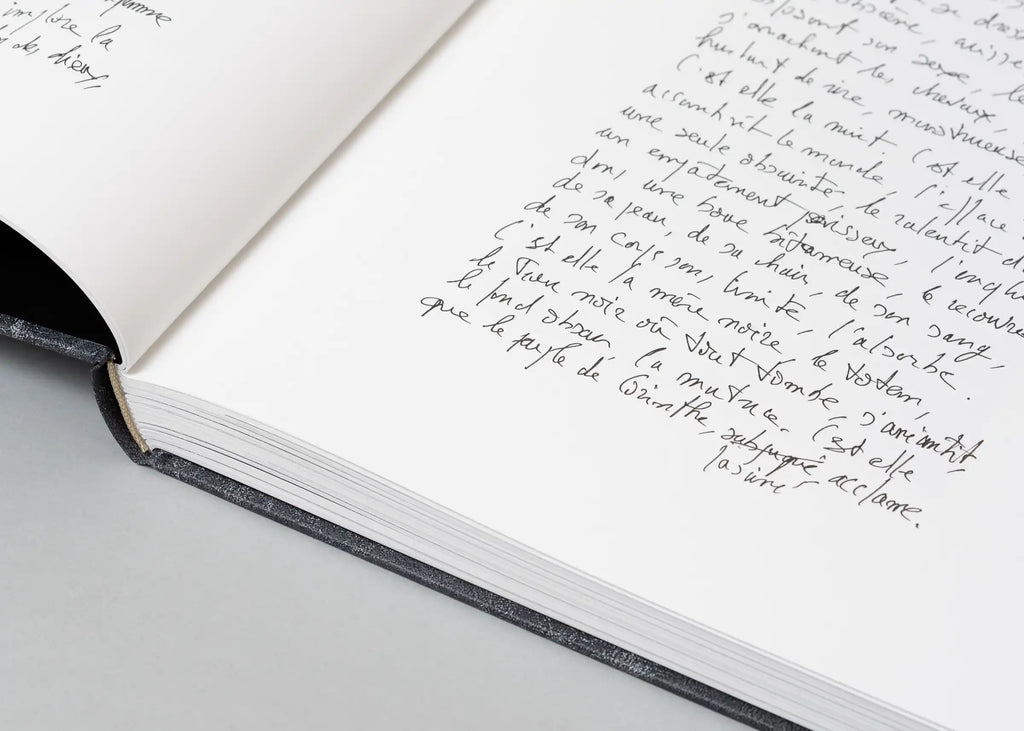 implore la
des dieux,
obscène,
son sexe, les
s'arrachent les cheveux,
hurlent de rire, monstrueuse
C'est elle la nuit. C'est elle
assombrit le monde, l'efface
une seule obscurité, le ralentit d
un empâtement poisseux, l'englu
d'une boue bitumeuse, le recouvre
de sa peau, de sa chair, de son sang,
de son corps limité, l'absorbe.
C'est elle la mère noire, le totem,
le Trou noir où tout tombe, s'anéantit,
le fond obscur, la matrice. C'est elle
que le peuple de Corinthe, subjugué acclame.